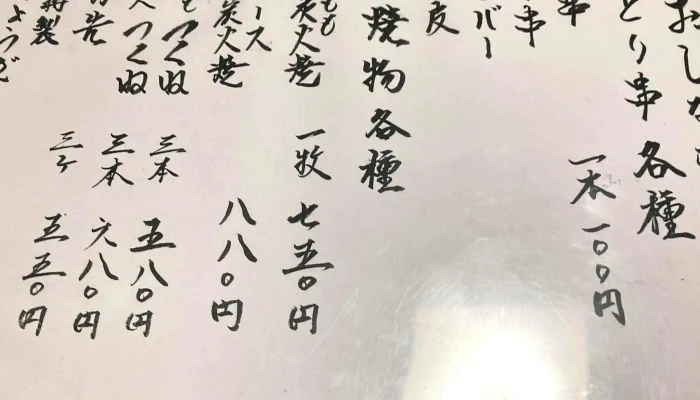 おしな
とり串各種
一本 一〇〇円
串
串
バー
焼物各種
もも
炭火焼 一枚 七五〇円
ース
炭火焼 八八〇円
つくね 三本 五八〇円
つくね 三本 六八〇円
特製
ょうざ 三ケ 五五〇円